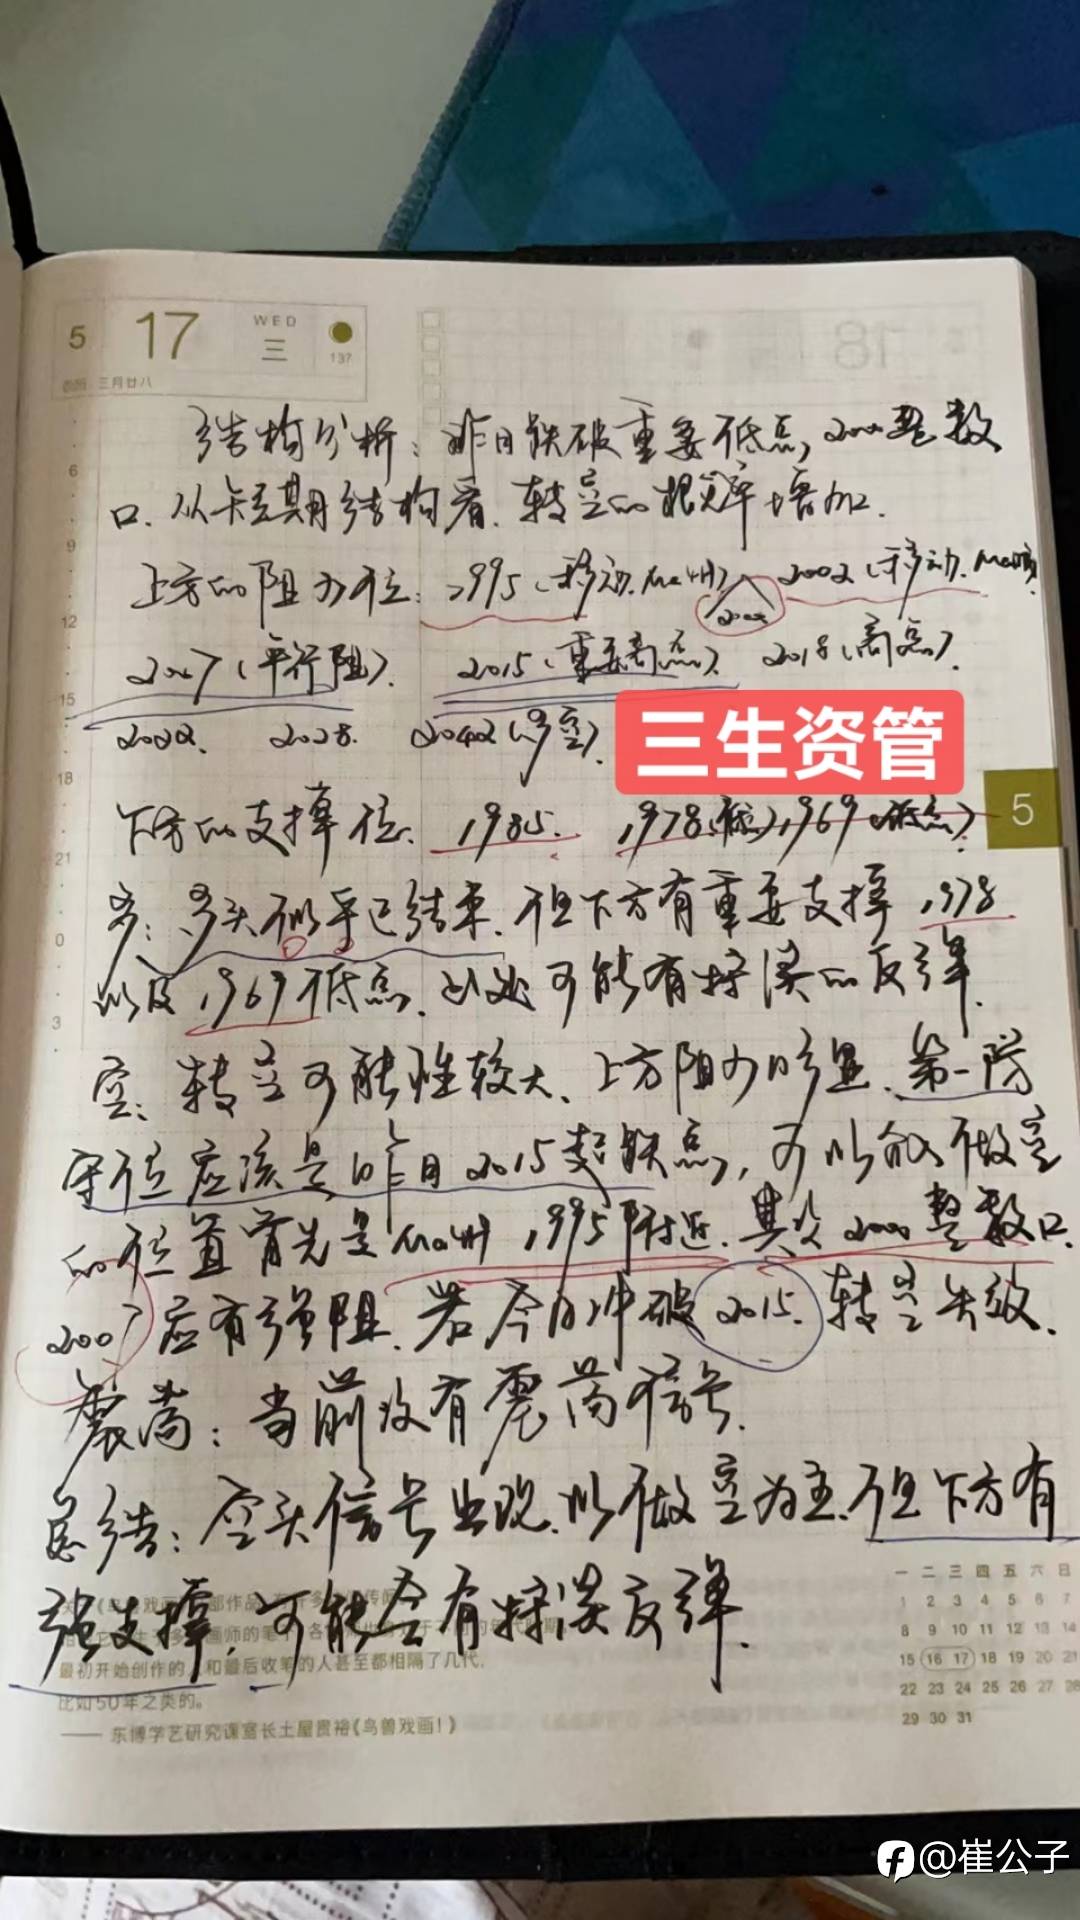 5 17 WED 三 137
三月廿八
18
结构分析：昨日跌破重要低点，2000整数
口.从短期结构看.转空的概率增加.
上方的阻力位：1995（移动.Ma4H） 2002（移动.Ma
2000
2007（平行阻）. 2015（重要高点）. 2018（高点）.
2022. 2028. 2042（多空）.
三生资管
下方的支撑位. 1985. 1978（低）1969（低点）.
5
多：多头似乎已结束.但下方有重要支撑 1978
① ②
以及1969低点.此处可能有短线的反弹.
空：转空可能性较大、上方阻力明显.第一防
守位应该是昨日2015起跌点，可以做空
的位置首先是Ma4H 1995附近.其次2000整数口.
2007应有强阻.若今日冲破2015.转空失效.
震荡：当前没有震荡信号.
总结：空头信号出现.以做空为主.但下方有
强支撑.可能会有短线反弹.
最初开始创作的人和最后收笔的人甚至都相隔了几代.
比如50年之类的。
—— 东博学艺研究课室长土屋贵裕《鸟兽戏画！》
一 二 三 四 五 六 日
1 2 3 4 5 6 7
8 9 10 11 12 13 14
15 16 17 18 19 20 21
22 23 24 25 26 27 28
29 30 31
6
9
12
15
18
21
0
3
@崔公子